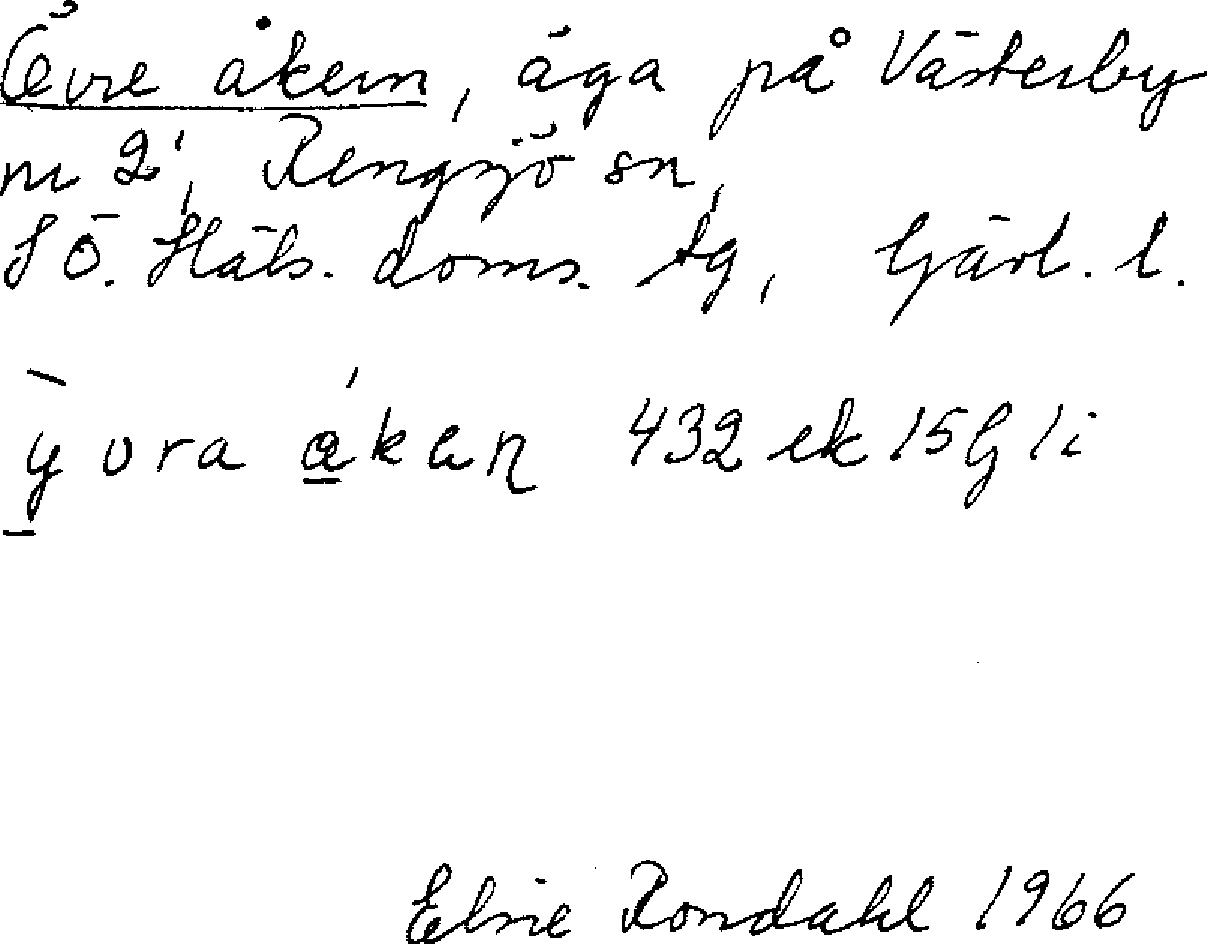 Övre åkern, äga på Västerby
nr 2, Rengsjö sn,
SÖ. Häls. doms. tg, Gävl. l.
ỳ̠vra á̠kaɳ 432 ek 15G 1i
Elsie Rondahl 1966